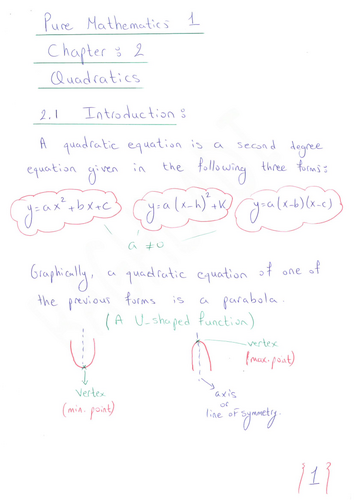 Pure Mathematics 1
Chapter : 2
Quadratics
2.1 Introduction :
A quadratic equation is a second degree
equation given in the following three forms:
y=ax²+bx+c
y=a(x-h)²+k
y=a(x-b)(x-c)
a ≠ 0
Graphically, a quadratic equation of one of
the previous forms is a parabola.
(A U-shaped function)
vertex
(min. point)
vertex
(max. point)
axis
or
line of symmetry.
{1}